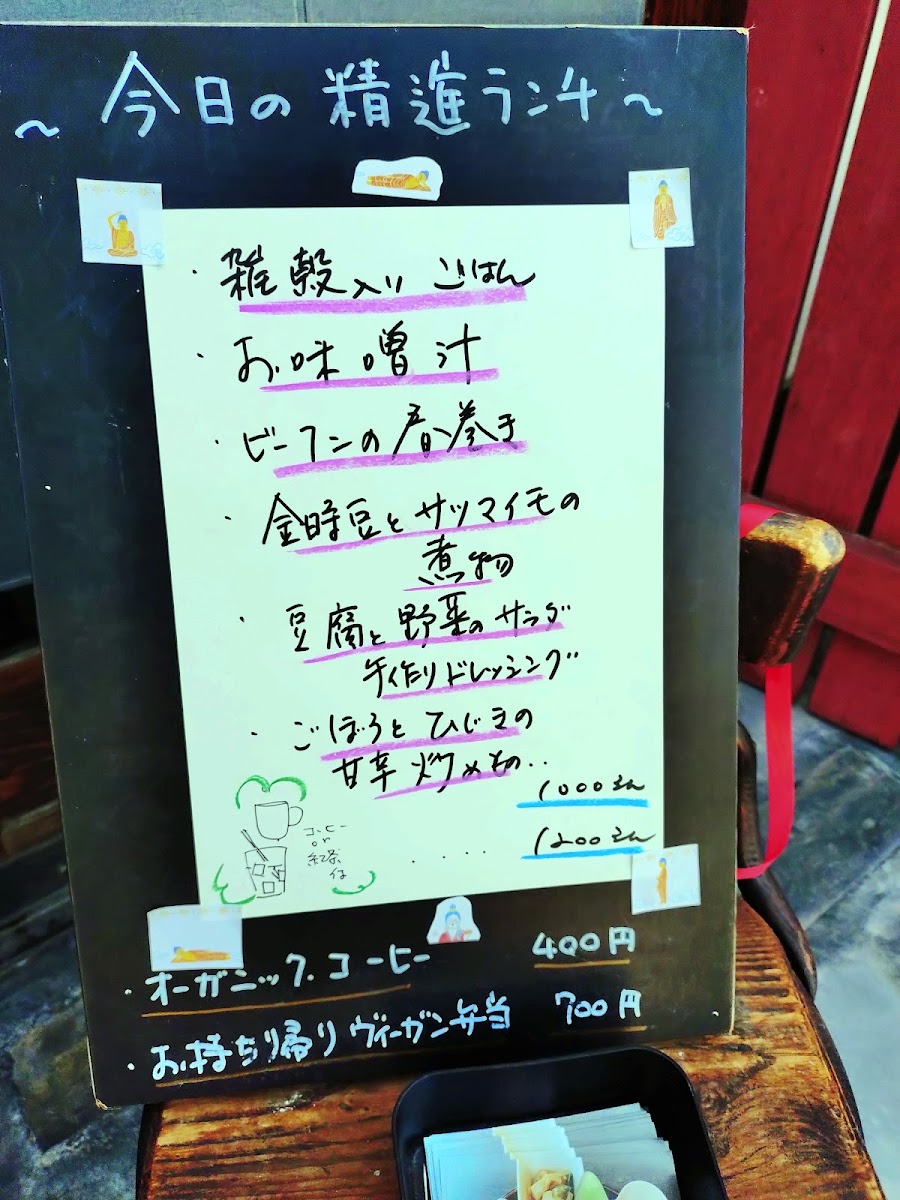 ~ 今日の精進ランチ ~
・雑穀入りごはん
・お味噌汁
・ビーフンの春巻き
・金時豆とサツマイモの
煮物
・豆腐と野菜のサラダ
手作りドレッシング
・ごぼうとひじきの
甘辛炒めもの..
1000えん
コーヒー
or
紅茶
付
.... 1200えん
・オーガニックコーヒー 400円
・お持ち帰りヴィーガン弁当 700円